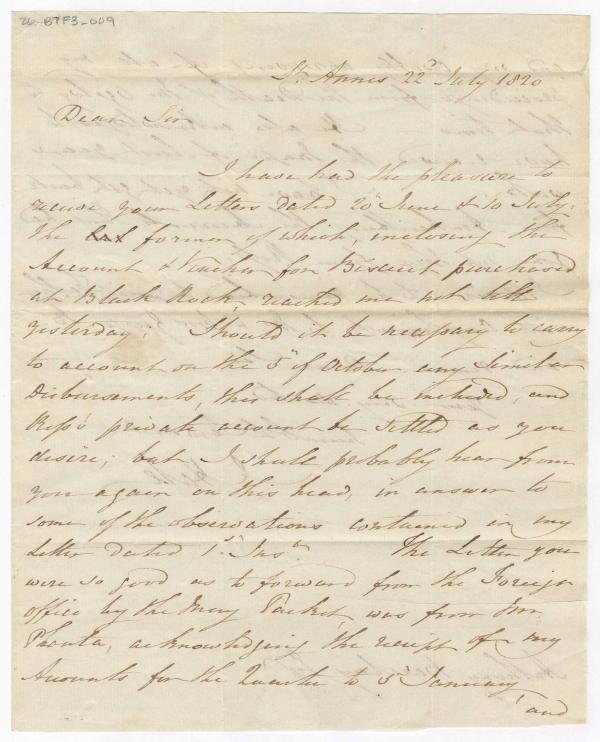 26-B7F3-009
St. Annes 22d July 1820
Dear Sir
I have had the pleasure to
receive your Letters dated 20th June & 10 July:
the former of which, inclosing the
Account & Voucher for Biscuit purchased
at Black Rock, reached me not till
yesterday: Should it be necessary to carry
to account on the 5th of October any similar
Disbursements, this shall be included, and
private account be settled as you
desire; but I shall probably hear from
you again on this head, in answer to
some of the observations contained in my
Letter dated 1st Inst. The Letter you
were so good as to forward from the Foreign
office by the May Packet, was from Mr.
Planta, acknowledging the receipt of my
Accounts for the Quarter to 5th January,
and